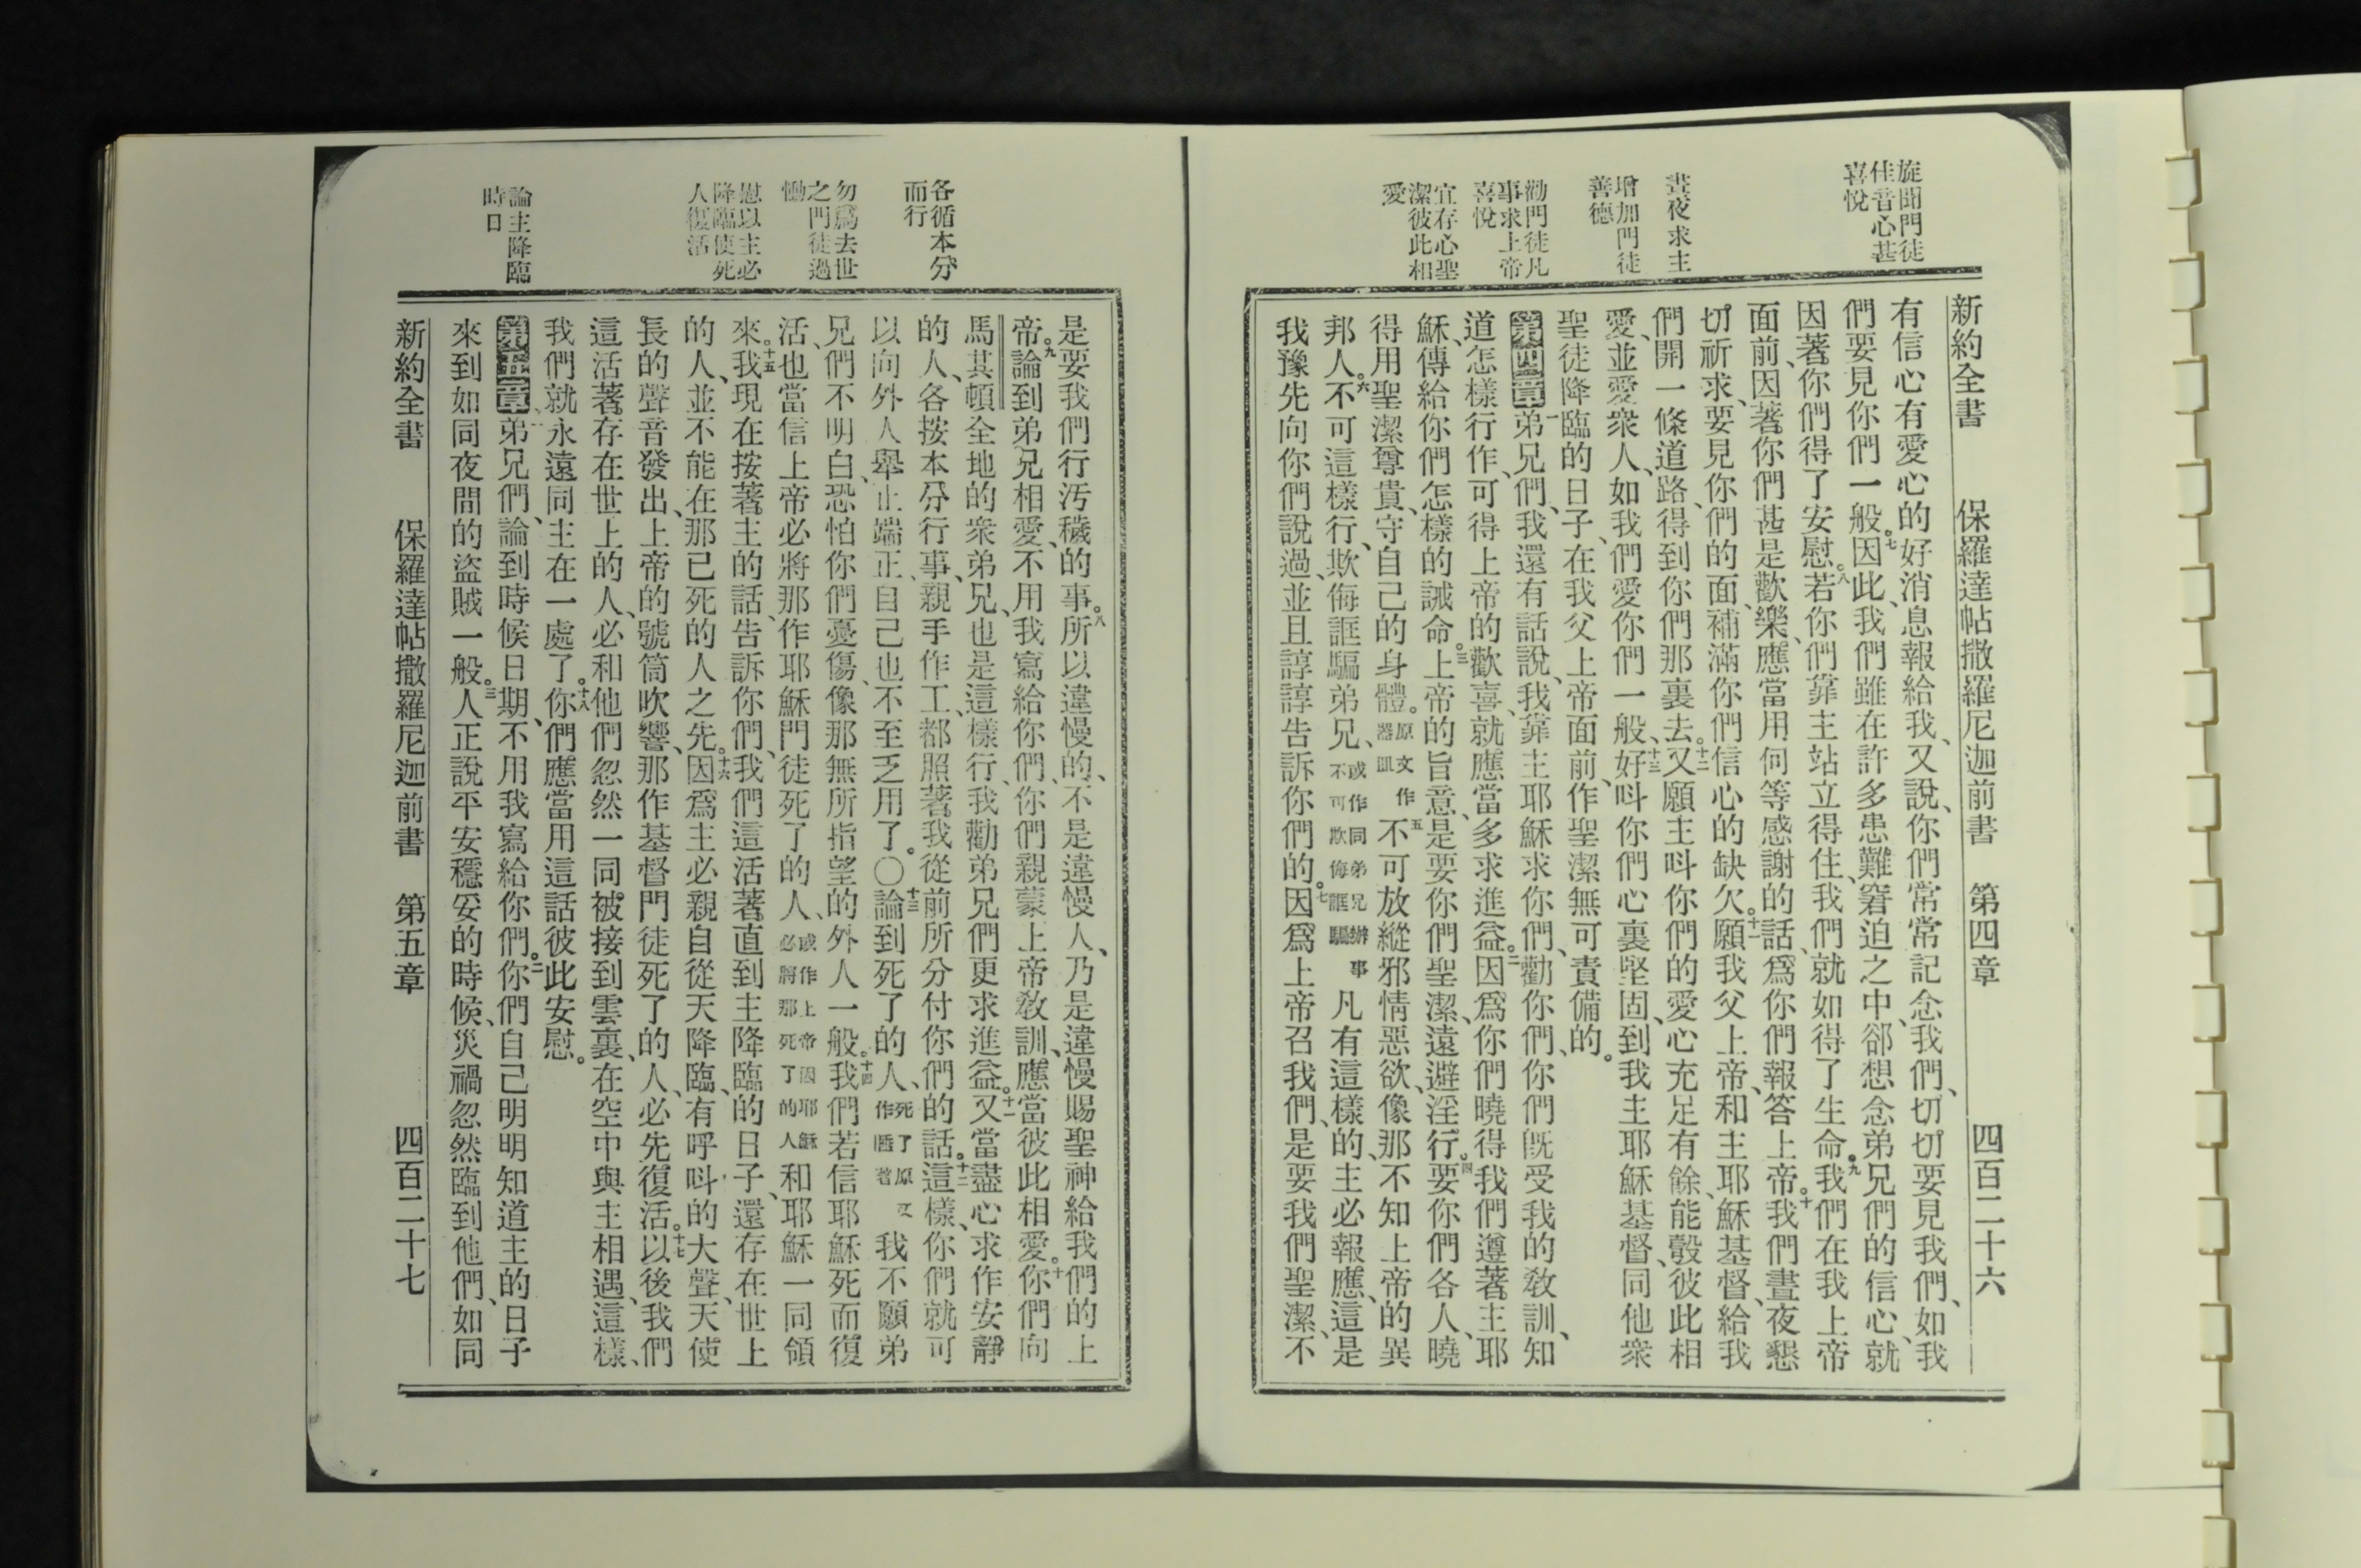 旋聞門徒
佳音心甚
喜悅
晝夜求主
增加門徒
善德
勸門徒凡
事求上帝
喜悅
宜存心聖
潔彼此相
愛
新約全書 保羅達帖撒羅尼迦前書 第四章 四百二十六
有信心有愛心的好消息報給我、又說、你們常常記念我們、切切要見我們、如我
們要見你們一般。七因此、我們雖在許多患難窘迫之中、卻想念弟兄們的信心、就
因著你們得了安慰。八若你們靠主站立得住、我們就如得了生命。九我們在我上帝
面前、因著你們甚是歡樂、應當用何等感謝的話、爲你們報答上帝。十我們晝夜懇
切祈求、要見你們的面、補滿你們信心的缺欠。十一願我父上帝、和主耶穌基督、給我
們開一條道路、得到你們那裏去。十二又願主呌你們的愛心充足有餘、能彀彼此相
愛、並愛衆人、如我們愛你們一般、十三好呌你們心裏堅固、到我主耶穌基督、同他衆
聖徒降臨的日子、在我父上帝面前、作聖潔無可責備的。
第四章 一弟兄們、我還有話說、我靠主耶穌求你們、勸你們、你們旣受我的敎訓、知
道怎樣行作、可得上帝的歡喜、就應當多求進益。二因爲你們曉得我們遵著主耶
穌、傳給你們怎樣的誡命。三上帝的旨意、是要你們聖潔、遠避淫行。四要你們各人、曉
得用聖潔尊貴、守自己的身體。原文作器皿五不可放縱邪情惡欲、像那不知上帝的異
邦人。六不可這樣行、欺侮誆騙弟兄、或作同弟兄辦事不可欺侮誆騙凡有這樣的、主必報應、這是
我豫先向你們說過、並且諄諄告訴你們的。七因爲上帝召我們、是要我們聖潔、不
各循本分
而行
勿爲去世
之門徒過
慟
慰以主必
降臨使死
人復活
論主降臨
時日
是要我們行汚穢的事。八所以違慢的、不是違慢人、乃是違慢賜聖神給我們的上
帝。九論到弟兄相愛、不用我寫給你們、你們親蒙上帝敎訓、應當彼此相愛。十你們向
馬其頓全地的衆弟兄、也是這樣行、我勸弟兄們更求進益。十一又當盡心求作安靜
的人、各按本分行事、親手作工、都照著我從前所分付你們的話。十二這樣、你們就可
以向外人舉止端正、自己也不至乏用了。○十三論到死了的人、死了原文作睡著我不願弟
兄們不明白、恐怕你們憂傷、像那無所指望的外人一般。十四我們若信耶穌死而復
活、也當信上帝必將那作耶穌門徒死了的人、或作上帝因耶穌必將那死了的人和耶穌一同領
來。十五我現在按著主的話、告訴你們、我們這活著直到主降臨的日子、還存在世上
的人、並不能在那已死的人之先。十六因爲主必親自從天降臨、有呼呌的大聲、天使
長的聲音發出、上帝的號筒吹響、那作基督門徒死了的人、必先復活。十七以後我們
這活著存在世上的人、必和他們忽然一同被接到雲裏、在空中與主相遇、這樣、
我們就永遠同主在一處了。十八你們應當用這話彼此安慰。
第五章 一弟兄們、論到時候日期、不用我寫給你們。二你們自己明明知道主的日子
來到如同夜間的盜賊一般。三人正說平安穩妥的時候、災禍忽然臨到他們、如同
新約全書 保羅達帖撒羅尼迦前書 第五章 四百二十七